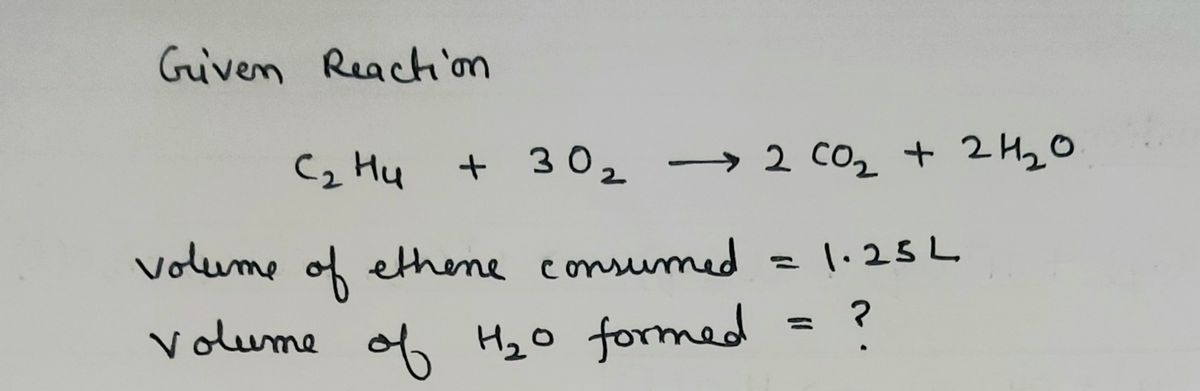 Given Reaction
C₂H₄ + 3O₂ → 2CO₂ + 2H₂O
volume of ethene consumed = 1.25L
volume of H₂O formed = ?